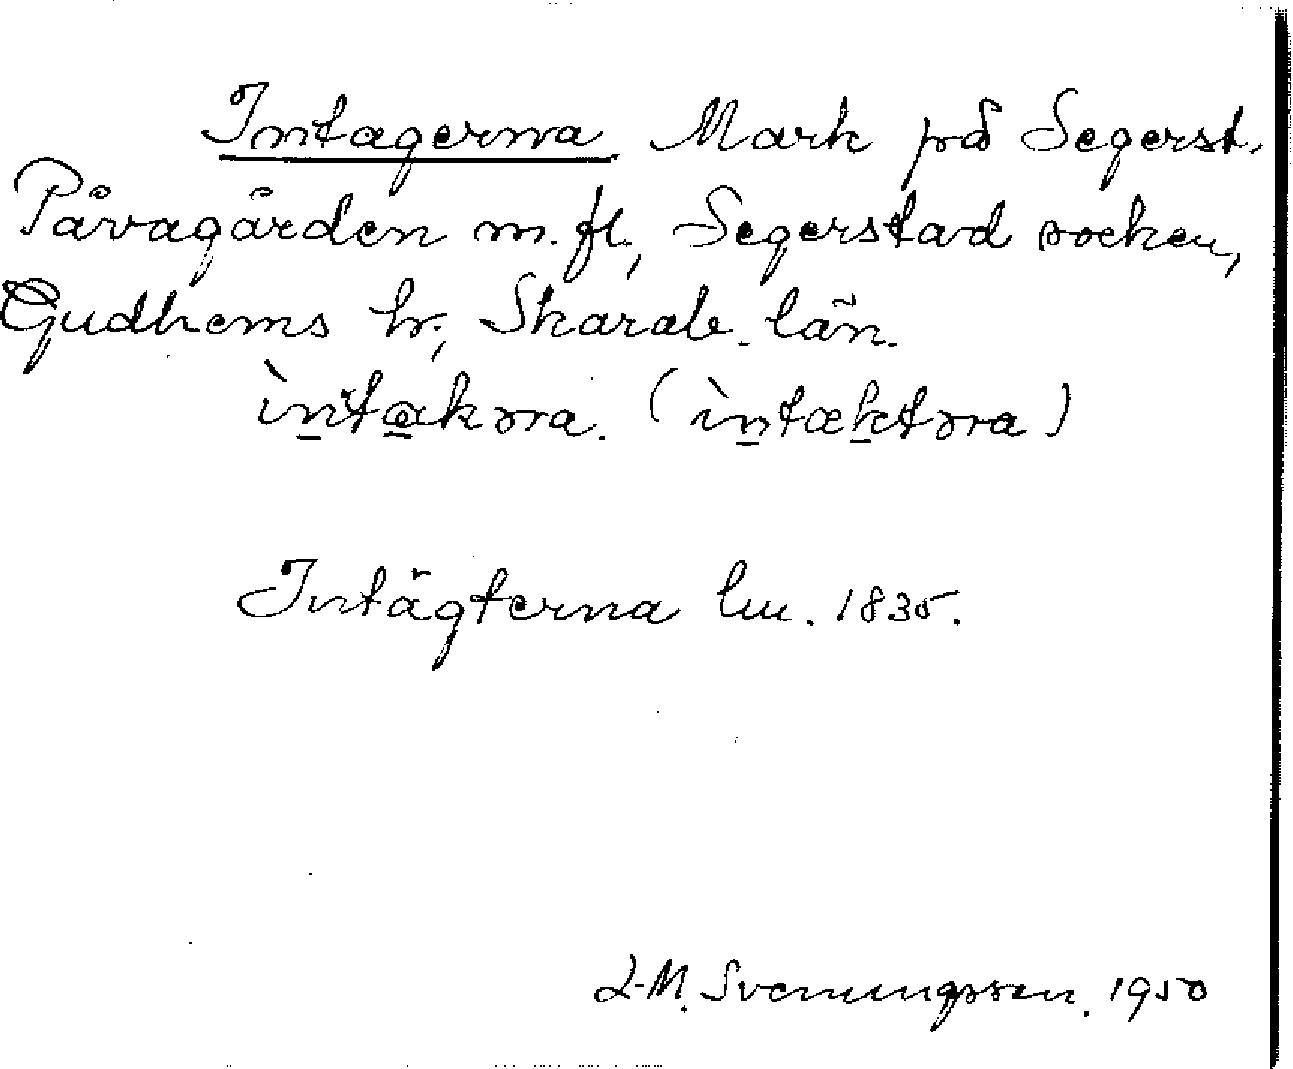 Intagerna Mark på Segerst.
Påvagården m.fl., Segerstad socken,
Gudhems hr., Skarab. län.
ìntakɔra. (ìntæktɔra)
Intägterna lm. 1835.
L-M. Svenungsson. 1950